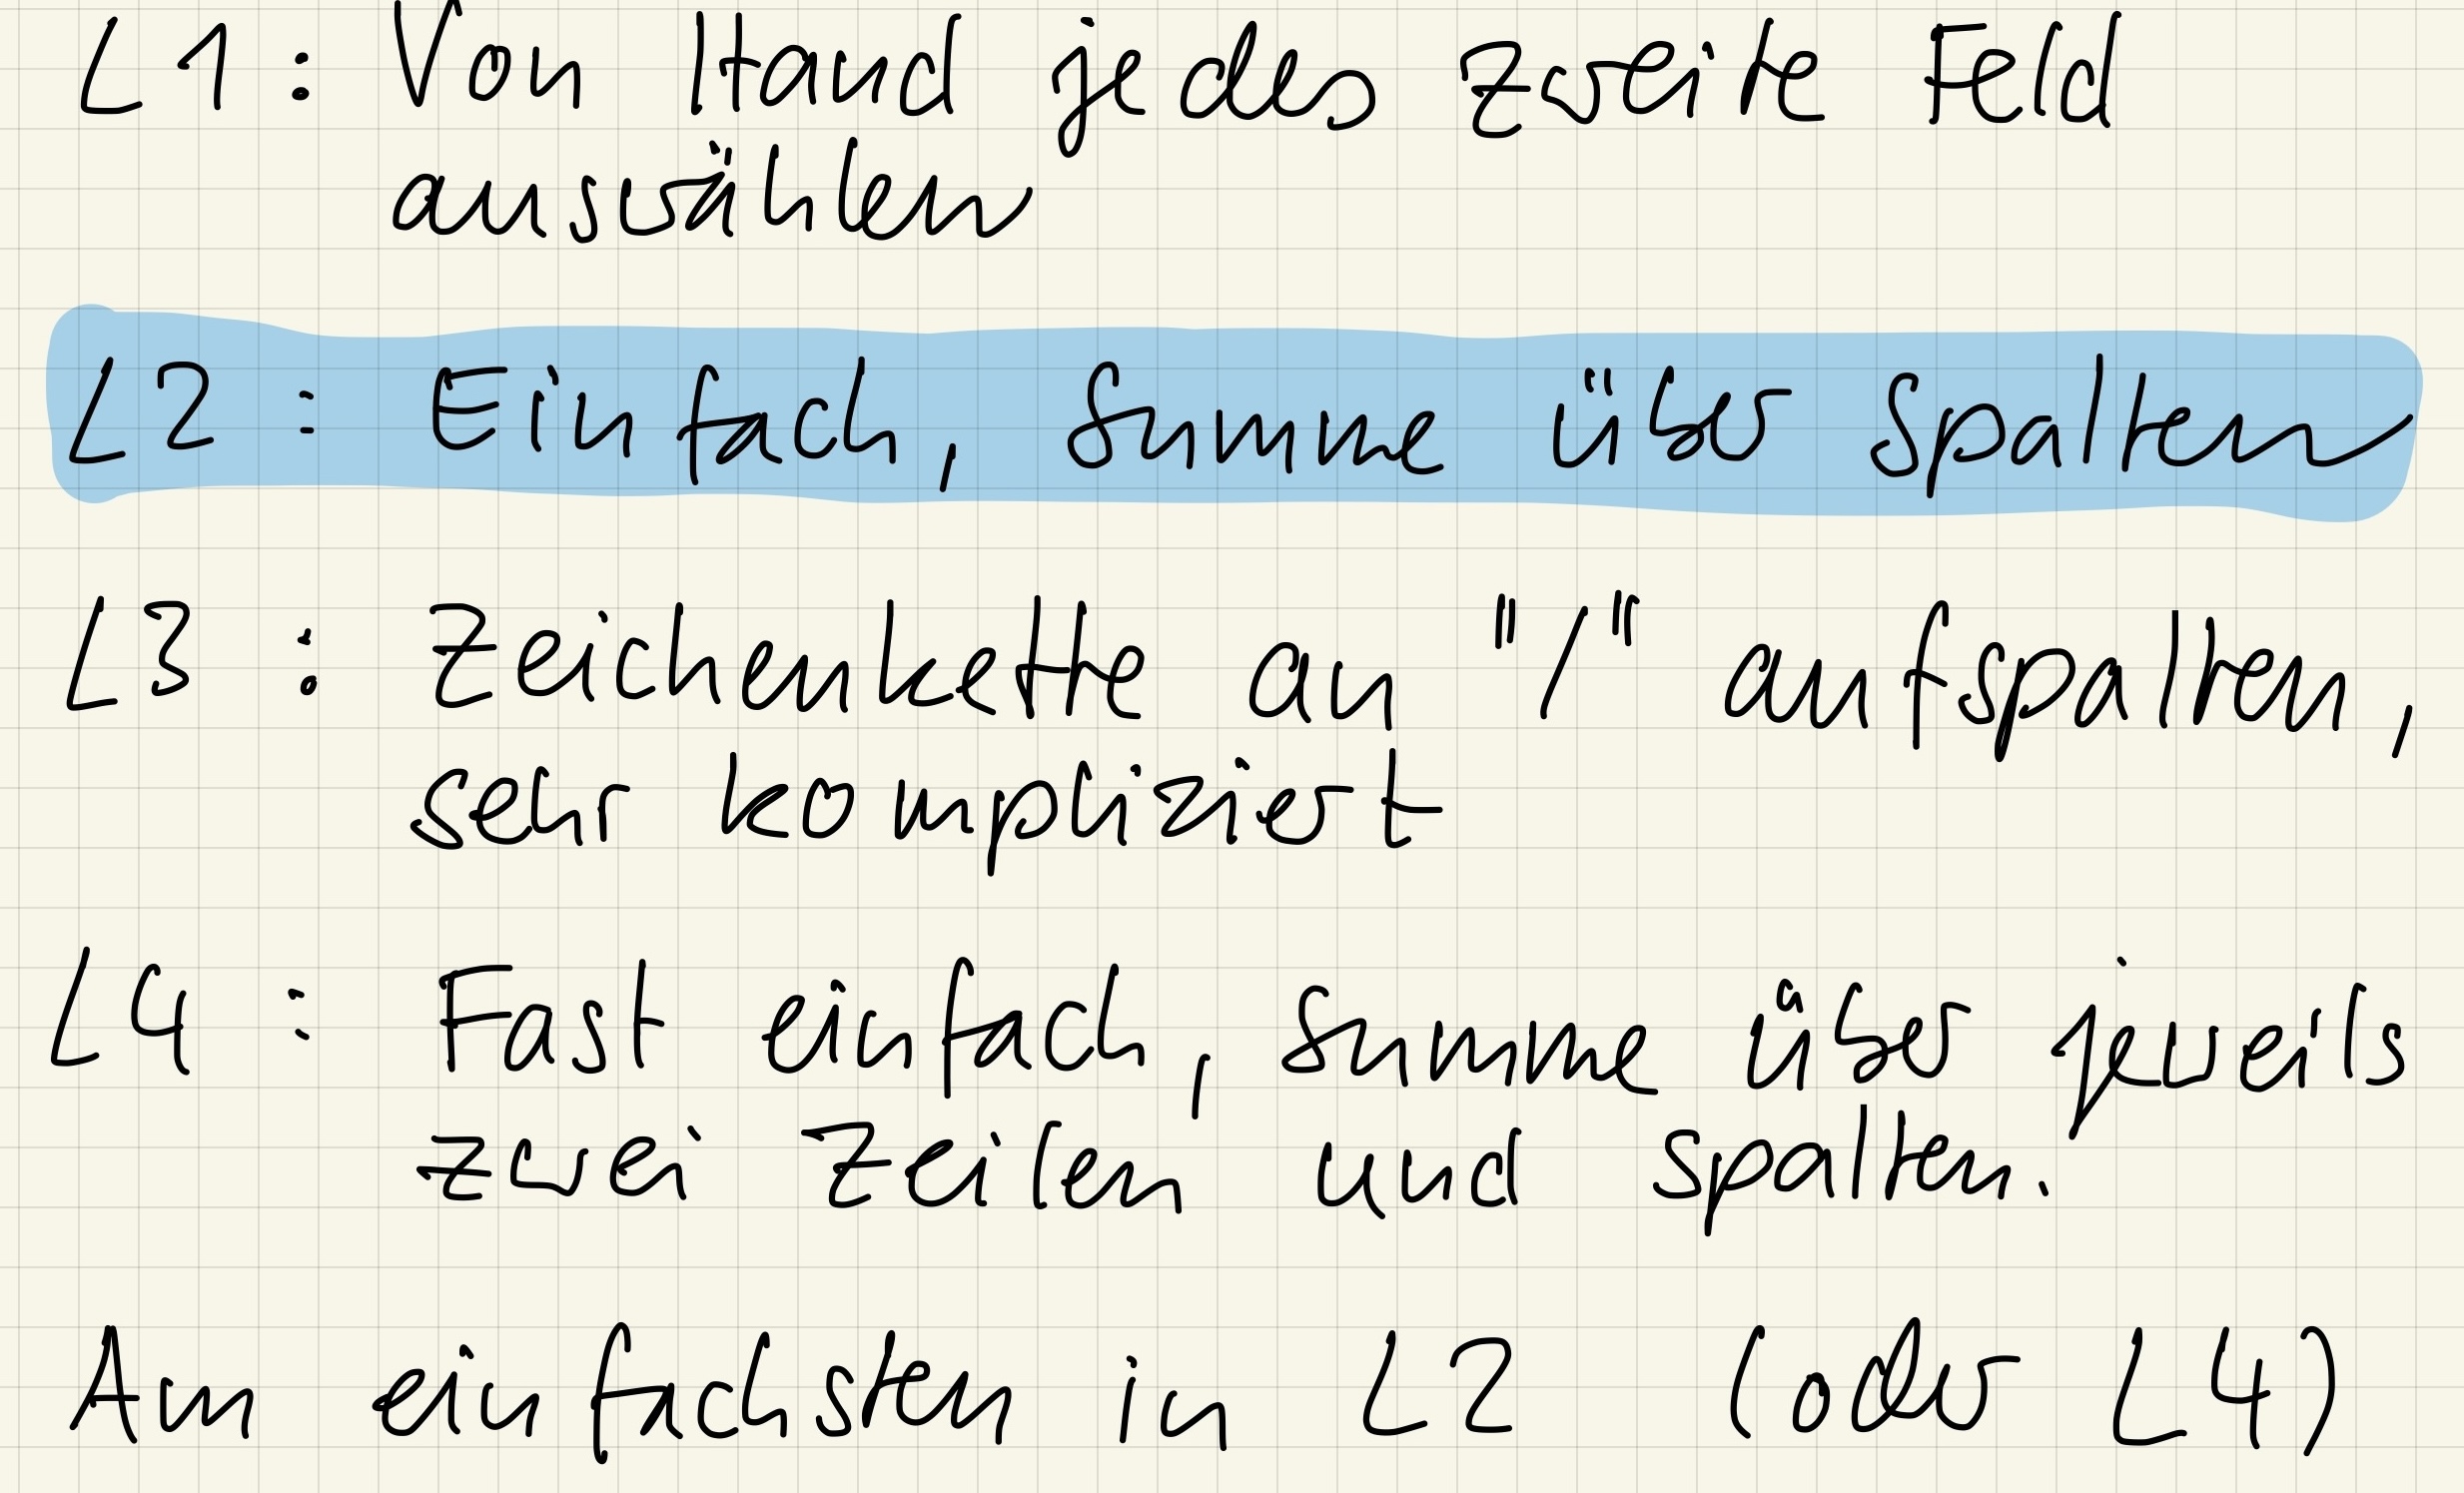 L1: Von Hand jedes zweite Feld
auswählen
L2: Einfach, Summe über Spalten
L3: Zeichenkette an "/" aufspalten,
sehr kompliziert
L4: Fast einfach, Summe über jeweils
zwei Zeilen und Spalten.
Am einfachsten in L2 (oder L4)